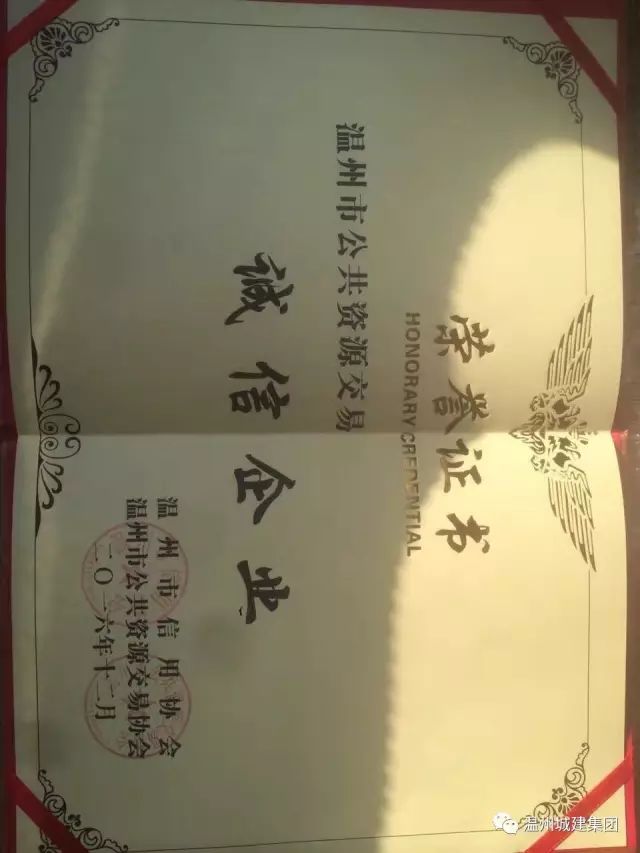 荣誉证书
HONORARY CREDENTIAL
温州市公共资源交易
诚信企业
温州市信用协会
温州市公共资源交易协会
二〇一六年十二月
温州城建集团